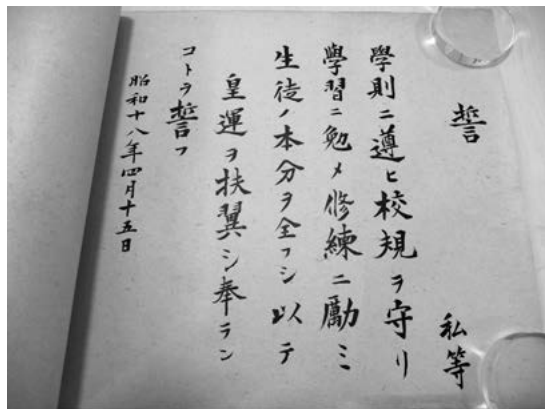 誓
私等
學則ニ遵ヒ校規ヲ守リ
學習ニ勉メ修練ニ勵ミ
生徒ノ本分ヲ全フシ以テ
皇運ヲ扶翼シ奉ラン
コトヲ誓フ
昭和十八年四月十五日